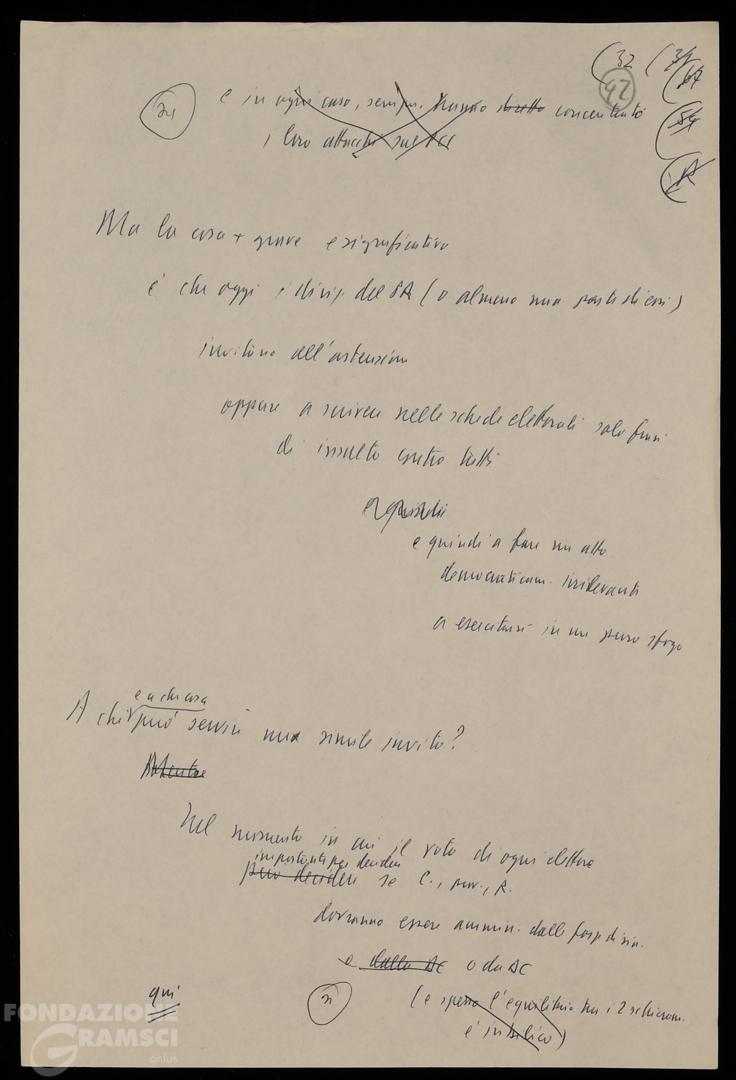 (32 (34
42
24 e in ogni caso, sempre hanno diretto concentrato
i loro attacchi sul PCI
Ma la cosa + grave e significativa
è che oggi i dirig. del PA (o almeno una parte di essi)
invitano all'astensione
oppure a scrivere nelle schede elettorali solo frasi
di insulto contro tutti
e quindi
e quindi a fare un atto
democraticam. irrilevante
a esercitarsi in un puro sfogo
e a che cosa
A chi può servire una simile invito?
Nel momento in cui il voto di ogni elettore
importante per decidere
può decidere se C., prov., R.
dovranno essere ammin. dalle forze di sin.
e dalla DC o da DC
qui (e spesso l'equilibrio tra i 2 schieram.
è in bilico)
FONDAZIONE
GRAMSCI
onlus